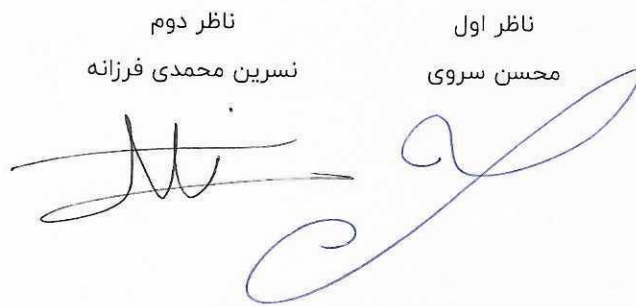 ناظر اول
محسن سروی
ناظر دوم
نسرین محمدی فرزانه